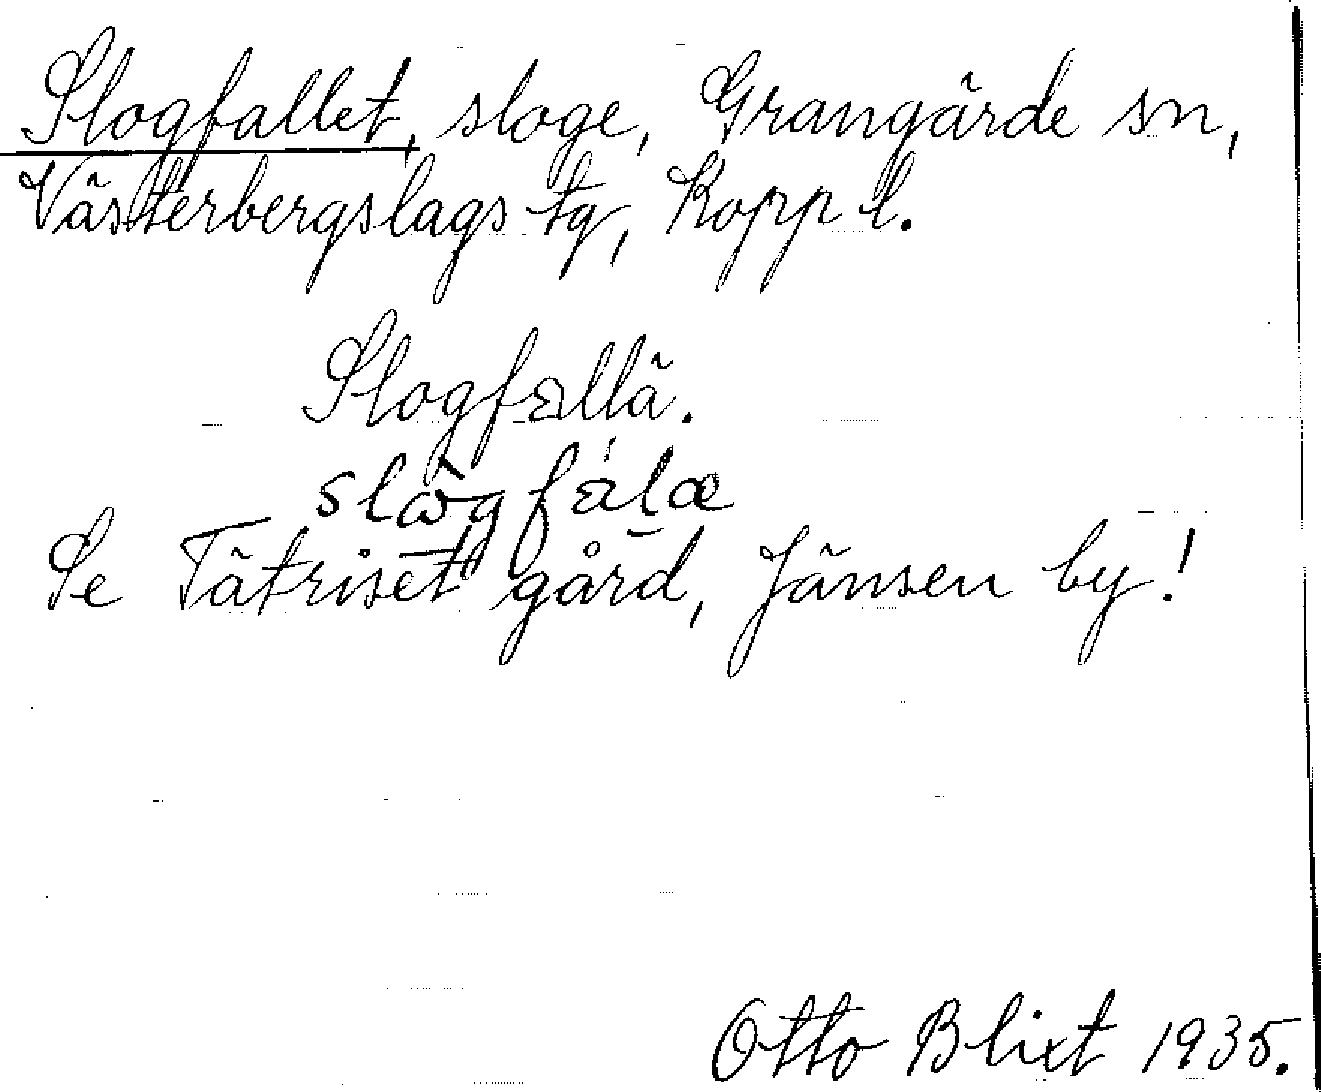 Slogfallet, sloge, Grangärde sn,
Västerbergslags tg, Kopp l.
Slogfallä.
slògfàlæ
Se Tätriset gård, Jänsen by!
Otto Blixt 1935.